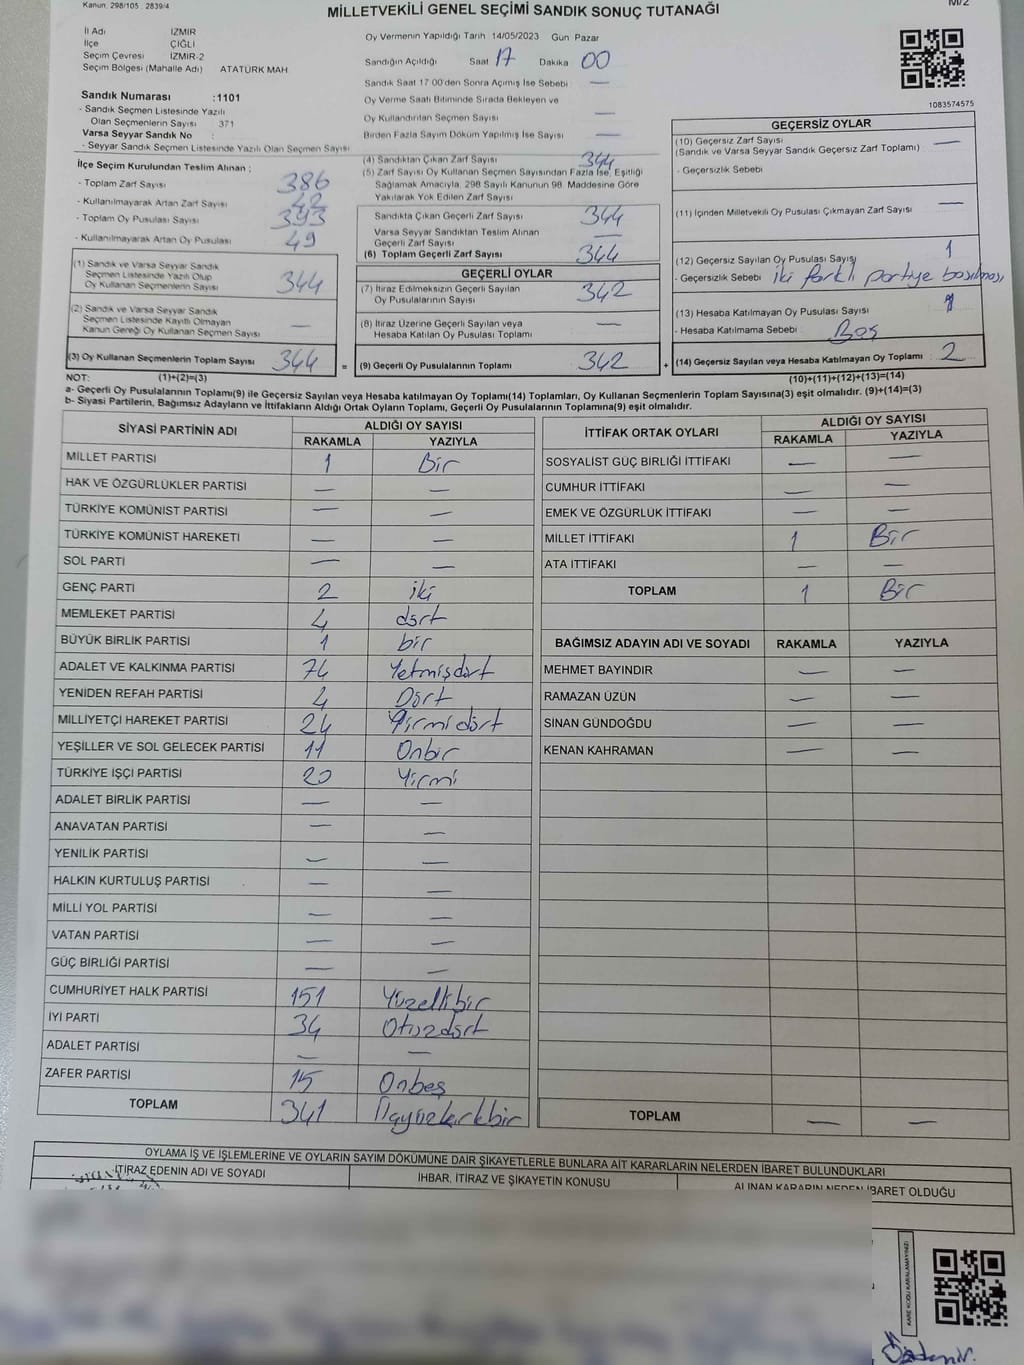 Kanun. 298/105 . 2839/4
M/2
MİLLETVEKİLİ GENEL SEÇİMİ SANDIK SONUÇ TUTANAĞI
İl Adı İZMİR
İlçe ÇİĞLİ
Seçim Çevresi İZMİR-2
Seçim Bölgesi (Mahalle Adı) ATATÜRK MAH
Sandık Numarası :1101
- Sandık Seçmen Listesinde Yazılı
Olan Seçmenlerin Sayısı 371
Varsa Seyyar Sandık No :
- Seyyar Sandık Seçmen Listesinde Yazılı Olan Seçmen Sayısı
İlçe Seçim Kurulundan Teslim Alınan ;
- Toplam Zarf Sayısı 386
- Kullanılmayarak Artan Zarf Sayısı 42
- Toplam Oy Pusulası Sayısı 393
- Kullanılmayarak Artan Oy Pusulası 49
(1) Sandık ve Varsa Seyyar Sandık
Seçmen Listesinde Yazılı Olup
Oy Kullanan Seçmenlerin Sayısı 344
(2) Sandık ve Varsa Seyyar Sandık
Seçmen Listesinde Kayıtlı Olmayan
Kanun Gereği Oy Kullanan Seçmen Sayısı —
(3) Oy Kullanan Seçmenlerin Toplam Sayısı 344 =
Oy Vermenin Yapıldığı Tarih 14/05/2023 Gün Pazar
Sandığın Açıldığı Saat 17 Dakika 00
Sandık Saat 17 00'den Sonra Açımış İse Sebebi —
Oy Verme Saati Bitiminde Sırada Bekleyen ve
Oy Kullandırılan Seçmen Sayısı —
Birden Fazla Sayım Döküm Yapılmış İse Sayısı —
(4) Sandıktan Çıkan Zarf Sayısı 344
(5) Zarf Sayısı Oy Kullanan Seçmen Sayısından Fazla İse, Eşitliği
Sağlamak Amacıyla, 298 Sayılı Kanunun 98. Maddesine Göre
Yakılarak Yok Edilen Zarf Sayısı
Sandıkta Çıkan Geçerli Zarf Sayısı 344
Varsa Seyyar Sandıktan Teslim Alınan
Geçerli Zarf Sayısı —
(6) Toplam Geçerli Zarf Sayısı 344
GEÇERLİ OYLAR
(7) İtiraz Edilmeksizin Geçerli Sayılan
Oy Pusulalarının Sayısı 342
(8) İtiraz Üzerine Geçerli Sayılan veya
Hesaba Katılan Oy Pusulası Toplamı —
(9) Geçerli Oy Pusulalarının Toplamı 342 +
1083574575
GEÇERSİZ OYLAR
(10) Geçersiz Zarf Sayısı —
(Sandık ve Varsa Seyyar Sandık Geçersiz Zarf Toplamı)
- Geçersizlik Sebebi
(11) İçinden Milletvekili Oy Pusulası Çıkmayan Zarf Sayısı —
(12) Geçersiz Sayılan Oy Pusulası Sayısı 1
- Geçersizlik Sebebi iki farklı partiye basılması
(13) Hesaba Katılmayan Oy Pusulası Sayısı 1
- Hesaba Katılmama Sebebi Boş
(14) Geçersiz Sayılan veya Hesaba Katılmayan Oy Toplamı 2
NOT: (1)+(2)=(3)
(10)+(11)+(12)+(13)=(14)
a- Geçerli Oy Pusulalarının Toplamı(9) ile Geçersiz Sayılan veya Hesaba Katılmayan Oy Toplamı(14) Toplamları, Oy Kullanan Seçmenlerin Toplam Sayısına(3) eşit olmalıdır. (9)+(14)=(3)
b- Siyasi Partilerin, Bağımsız Adayların ve İttifakların Aldığı Ortak Oyların Toplamı, Geçerli Oy Pusulalarının Toplamına(9) eşit olmalıdır.
SİYASİ PARTİNİN ADI ALDIĞI OY SAYISI
RAKAMLA YAZIYLA
MİLLET PARTİSİ 1 Bir
HAK VE ÖZGÜRLÜKLER PARTİSİ — —
TÜRKİYE KOMÜNİST PARTİSİ — —
TÜRKİYE KOMÜNİST HAREKETİ — —
SOL PARTİ — —
GENÇ PARTİ 2 iki
MEMLEKET PARTİSİ 4 dört
BÜYÜK BİRLİK PARTİSİ 1 bir
ADALET VE KALKINMA PARTİSİ 74 Yetmişdört
YENİDEN REFAH PARTİSİ 4 Dört
MİLLİYETÇİ HAREKET PARTİSİ 24 Yirmi dört
YEŞİLLER VE SOL GELECEK PARTİSİ 11 Onbir
TÜRKİYE İŞÇİ PARTİSİ 20 Yirmi
ADALET BİRLİK PARTİSİ — —
ANAVATAN PARTİSİ — —
YENİLİK PARTİSİ — —
HALKIN KURTULUŞ PARTİSİ — —
MİLLİ YOL PARTİSİ — —
VATAN PARTİSİ — —
GÜÇ BİRLİĞİ PARTİSİ — —
CUMHURİYET HALK PARTİSİ 151 Yüzellibir
İYİ PARTİ 34 Otuzdört
ADALET PARTİSİ — —
ZAFER PARTİSİ 15 Onbeş
TOPLAM 341 Üçyüzkırkbir
İTTİFAK ORTAK OYLARI ALDIĞI OY SAYISI
RAKAMLA YAZIYLA
SOSYALİST GÜÇ BİRLİĞİ İTTİFAKI — —
CUMHUR İTTİFAKI — —
EMEK VE ÖZGÜRLÜK İTTİFAKI — —
MİLLET İTTİFAKI 1 Bir
ATA İTTİFAKI — —
TOPLAM 1 Bir
BAĞIMSIZ ADAYIN ADI VE SOYADI RAKAMLA YAZIYLA
MEHMET BAYINDIR — —
RAMAZAN ÜZÜN — —
SİNAN GÜNDOĞDU — —
KENAN KAHRAMAN — —
TOPLAM — —
OYLAMA İŞ VE İŞLEMLERİNE VE OYLARIN SAYIM DÖKÜMÜNE DAİR ŞİKAYETLERLE BUNLARA AİT KARARLARIN NELERDEN İBARET BULUNDUKLARI
İTİRAZ EDENİN ADI VE SOYADI İHBAR, İTİRAZ VE ŞİKAYETİN KONUSU ALINAN KARARIN NEDEN İBARET OLDUĞU
KARE KODU KARALAMAYINIZ!
Özdemir.